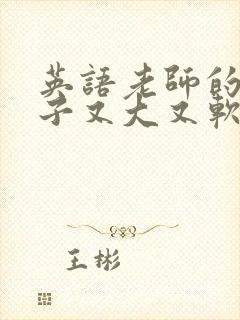 英語老師的
子又大又軟
王彬